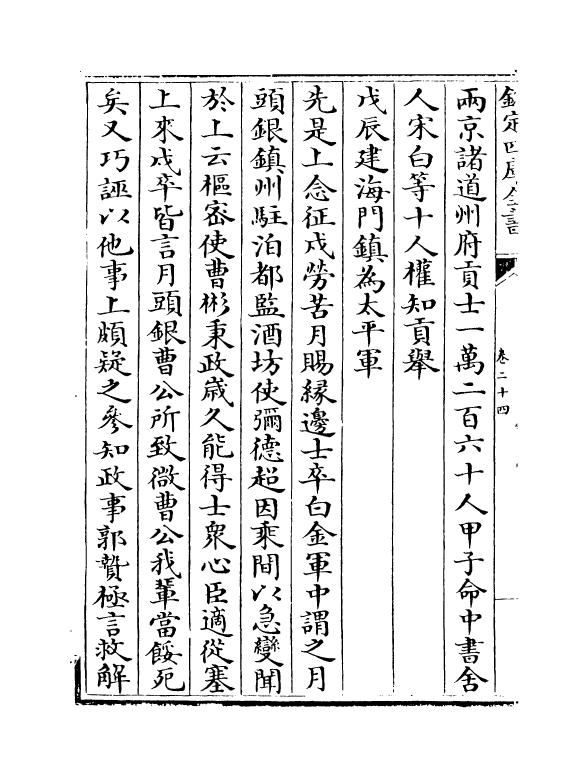 欽定四庫全書
卷二十四
兩京諸道州府貢士一萬二百六十人甲子命中書舍
人宋白等十人權知貢舉
戊辰建海門鎮為太平軍
先是上念征戍勞苦月賜縁邊士卒白金軍中謂之月
頭銀鎮州駐泊都監酒坊使彌德超因乘間以急變聞
於上云樞密使曹彬秉政嵗久能得士衆心臣適從塞
上來戍卒皆言月頭銀曹公所致微曹公我輩當餒死
矣又巧誣以他事上頗疑之參知政事郭贄極言救解